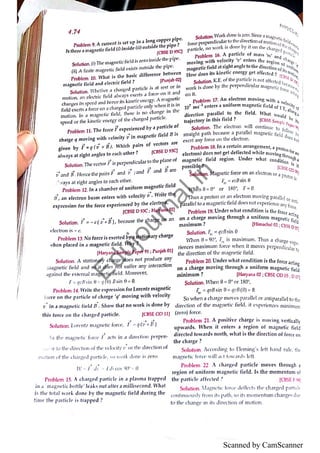 4.74
Problem 9. A current is set up in a long copper pipe.
Is there a magnetic field (i) inside (ii) outside the pipe ?
Solution. (i) The magnetic field is zero inside the pipe.
(ii) A finite magnetic field exists outside the pipe.
Problem 10. What is the basic difference between
magnetic field and electric field ?
Solution. Whether a charged particle is at rest or in
motion, an electric field always exerts a force on it and
changes its speed and hence its kinetic energy. A magnetic
field exerts a force on a charged particle only when it is in
motion. In a magnetic field, there is no change in the
speed or the kinetic energy of the charged particle.
Problem 11. The force F experienced by a particle of
charge q moving with velocity v in magnetic field B is
given by F = q(v × B). Which pairs of vectors are
always at right angles to each other ?
Solution. The vector F is perpendicular to the plane of
v and B. Hence the pairs F and v ; and F and B are
always at right angles to each other.
Problem 12. In a chamber of uniform magnetic field
B, an electron beam enters with velocity v. Write the
expression for the force experienced by the electrons.
Solution. F = -e(v × B), because the charge on an
electron is - e.
Problem 13. No force is exerted on a stationary charge
when placed in a magnetic field. Why ?
Solution. A stationary charge does not produce any
magnetic field and so it does not suffer any interaction
against the external magnetic field. Moreover,
F = qvB sin θ = q(0) B sin θ = 0.
Problem 14. Write the expression for Lorentz magnetic
force on the particle of charge 'q' moving with velocity
v in a magnetic field B. Show that no work is done by
this force on the charged particle. [CBSE OD 11]
Solution. Lorentz magnetic force, F = q(v × B)
As the magnetic force F acts in a direction perpen-
to the direction of the velocity v or the direction of
motion of the charged particle, so work done is zero.
Problem 15. A charged particle in a plasma trapped
in a 'magnetic bottle' leaks out after a millisecond. What
is the total work done by the magnetic field during the
time the particle is trapped ?
Solution. Work done is zero.
Problem 16. A particle of mass 'm' and charge
moving with velocity 'v' enters the region of
magnetic field at right angle to the direction of
How does its kinetic energy get affected ?
Solution. K.E. of the particle is not affected
work is done by the perpendicular magnetic force
Problem 17. An electron moving with a velocity of
enters a uniform magnetic field of
direction parallel to the field. What would be
trajectory in this field ?
Solution. The electron will continue to follow
straight path because a parallel magnetic field does not
exert any force on the electron.
Problem 18. In a certain arrangement, a proton
does not get deflected while moving through a
magnetic field region. Under what condition is
possible ?
Solution. Magnetic force on an electron or a proton is
When θ = 0° or 180°, F = 0
Thus a proton or an electron moving parallel or anti-
parallel to a magnetic field does not experience any force.
Problem 19. Under what condition is the force acting
on a charge moving through a uniform magnetic field
maximum ?
Solution. F = qvB sin θ
When θ = 90°, F is maximum. Thus a charge exp-
eriences maximum force when it moves perpendicular to
the direction of magnetic field.
Problem 20. Under what condition is the force acting
on a charge moving through a uniform magnetic field
minimum ?
Solution. When θ = 0° or 180°,
So when a charge moves parallel or antiparallel to the
direction of the magnetic field, it experiences minimum
(zero) force.
Problem 21. A positive charge is moving vertically
upwards. When it enters a region of magnetic field
directed towards north, what is the direction of force on
the charge ?
Solution. According to Fleming's left hand rule, the
magnetic force will act towards left.
Problem 22. A charged particle moves through a
region of uniform magnetic field. Is the momentum of
the particle affected ?
Solution. Magnetic force deflects the charged particle
continuously from its path, so its momentum changes due
to the change in its direction of motion.
Scanned by CamScanner